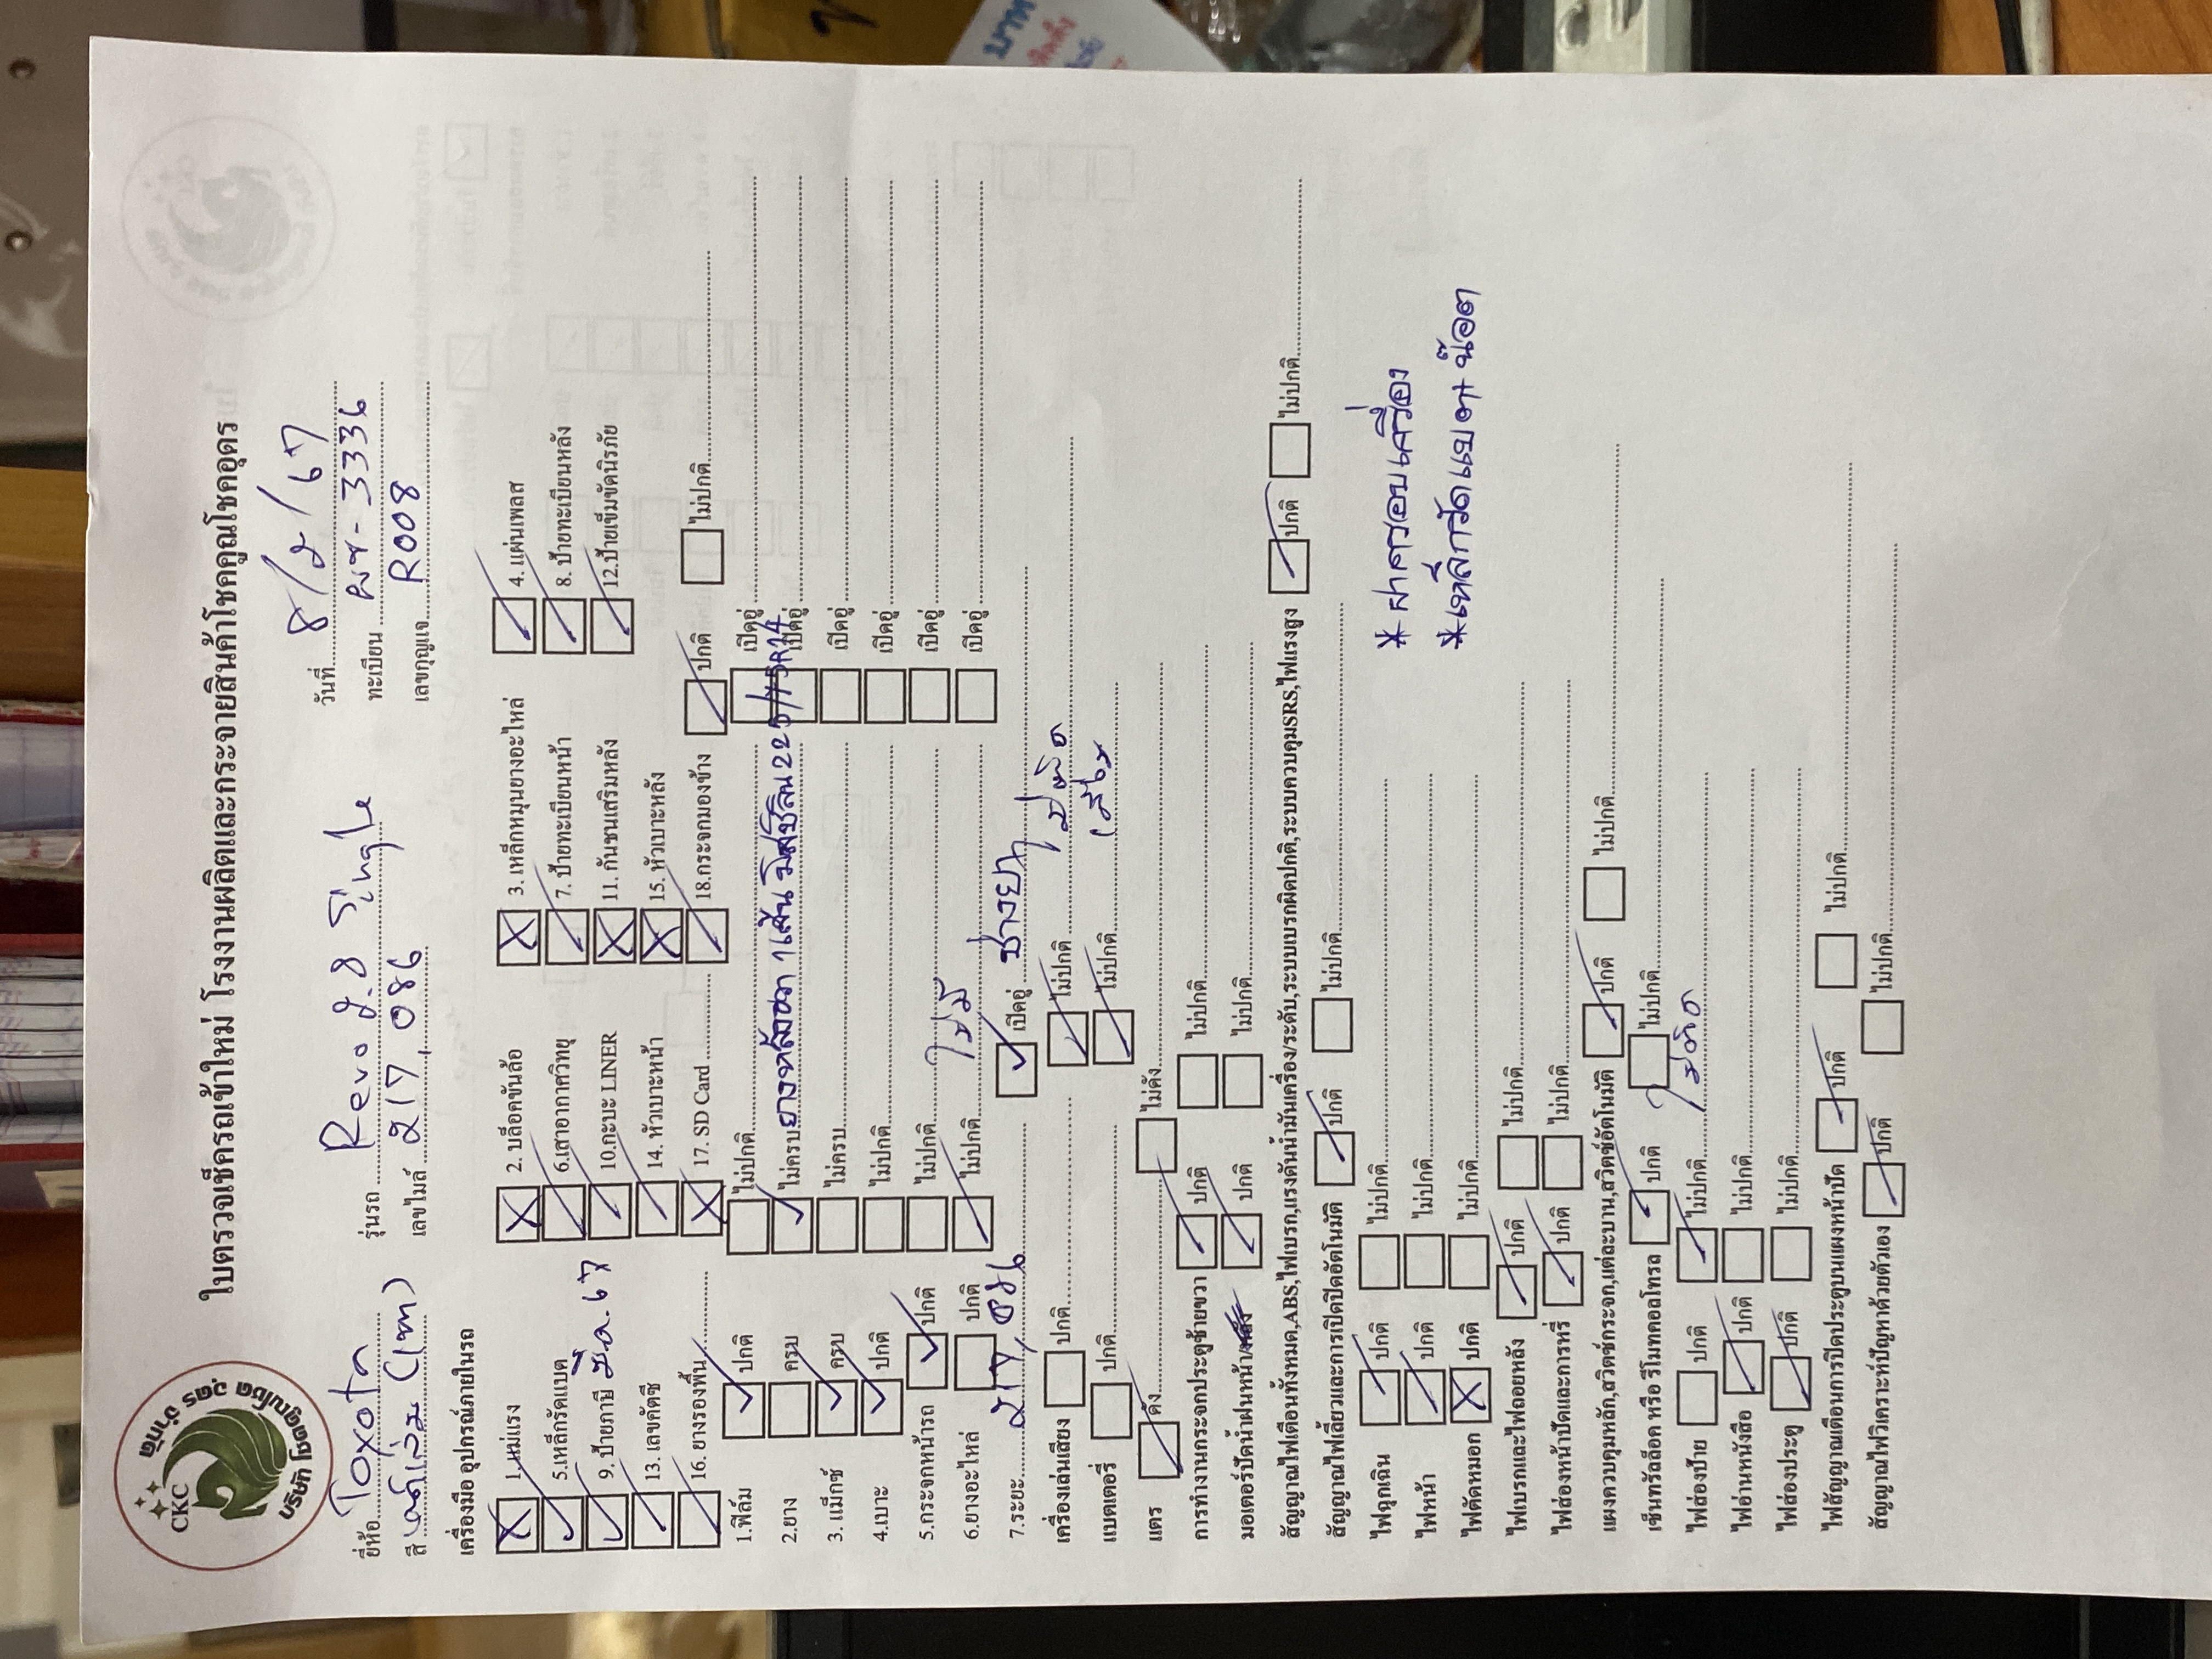 CKC
บริษัท โชคคูณโชค อุดร จำกัด
ใบตรวจเช็ครถเข้าใหม่ โรงงานผลิตและกระจายสินค้าโชคคูณโชคอุดร
วันที่ 8/2/67
ยี่ห้อ Toyota รุ่นรถ Revo 2.8 Single ทะเบียน 3336
สี เลขไมล์ 217,086 เลขกุญแจ R008
เครื่องมือ อุปกรณ์ภายในรถ
1.แม่แรง 2. บล็อคขันล้อ 3. เหล็กหมุนยางอะไหล่ 4. แผ่นเพลส
5.เหล็กรัดแบต 6.เสาอากาศวิทยุ 7. ป้ายทะเบียนหน้า 8. ป้ายทะเบียนหลัง
9. ป้ายภาษี 67 10.กะบะ LINER 11. กันชนเสริมหลัง 12.ป้ายเข็มขัดนิรภัย
13. เลขคัตซี 14. หัวเบาะหน้า 15. หัวเบาะหลัง
16. ยางรองพื้น 17. SD Card 18.กระจกมองข้าง ปกติ ไม่ปกติ
1.ฟิล์ม ปกติ ไม่ปกติ เปิดอู่
2.ยาง ครบ ไม่ครบ ยางหลังขวา 1 เส้น มิสชิลิน 225/75R14 เปิดอู่
3. แม็กซ์ ครบ ไม่ครบ เปิดอู่
4.เบาะ ปกติ ไม่ปกติ เปิดอู่
5.กระจกหน้ารถ ปกติ ไม่ปกติ เปิดอู่
6.ยางอะไหล่ ปกติ ไม่ปกติ ไม่มี เปิดอู่
7.ระยะ 217,086 เปิดอู่ ช่วงยาว
เครื่องเล่นเสียง ปกติ ไม่ปกติ ไม่ติด
แบตเตอรี่ ปกติ ไม่ปกติ
แตร ดัง ไม่ดัง
การทำงานกระจกประตูซ้ายขวา ปกติ ไม่ปกติ
มอเตอร์ปัดน้ำฝนหน้า/หลัง ปกติ ไม่ปกติ
สัญญาณไฟเตือนทั้งหมด,ABS,ไฟเบรก,แรงดันน้ำมันเครื่อง/ระดับ,ระบบเบรกผิดปกติ,ระบบควบคุมSRS,ไฟแรงสูง ปกติ ไม่ปกติ
สัญญาณไฟเลี้ยวและการเปิดปิดอัตโนมัติ ปกติ ไม่ปกติ
ไฟฉุกเฉิน ปกติ ไม่ปกติ
* ฝาครอบเครื่อง
ไฟหน้า ปกติ ไม่ปกติ
* เหล็กรัดแบต+น๊อต
ไฟตัดหมอก ปกติ ไม่ปกติ
ไฟเบรกและไฟถอยหลัง ปกติ ไม่ปกติ
ไฟส่องหน้าปัดและการหรี่ ปกติ ไม่ปกติ
แผงควบคุมหลัก,สวิตช์กระจก,แต่ละบาน,สวิตช์อัตโนมัติ ปกติ ไม่ปกติ
เซ็นทรัลล็อค หรือ รีโมทคอลโทรล ปกติ ไม่ปกติ
ไฟส่องป้าย ปกติ ไม่ปกติ ไม่ติด
ไฟอ่านหนังสือ ปกติ ไม่ปกติ
ไฟส่องประตู ปกติ ไม่ปกติ
ไฟสัญญาณเตือนการปิดประตูบนแผงหน้าปัด ปกติ ไม่ปกติ
สัญญาณไฟวิเคราะห์ปัญหาด้วยตัวเอง ปกติ ไม่ปกติ